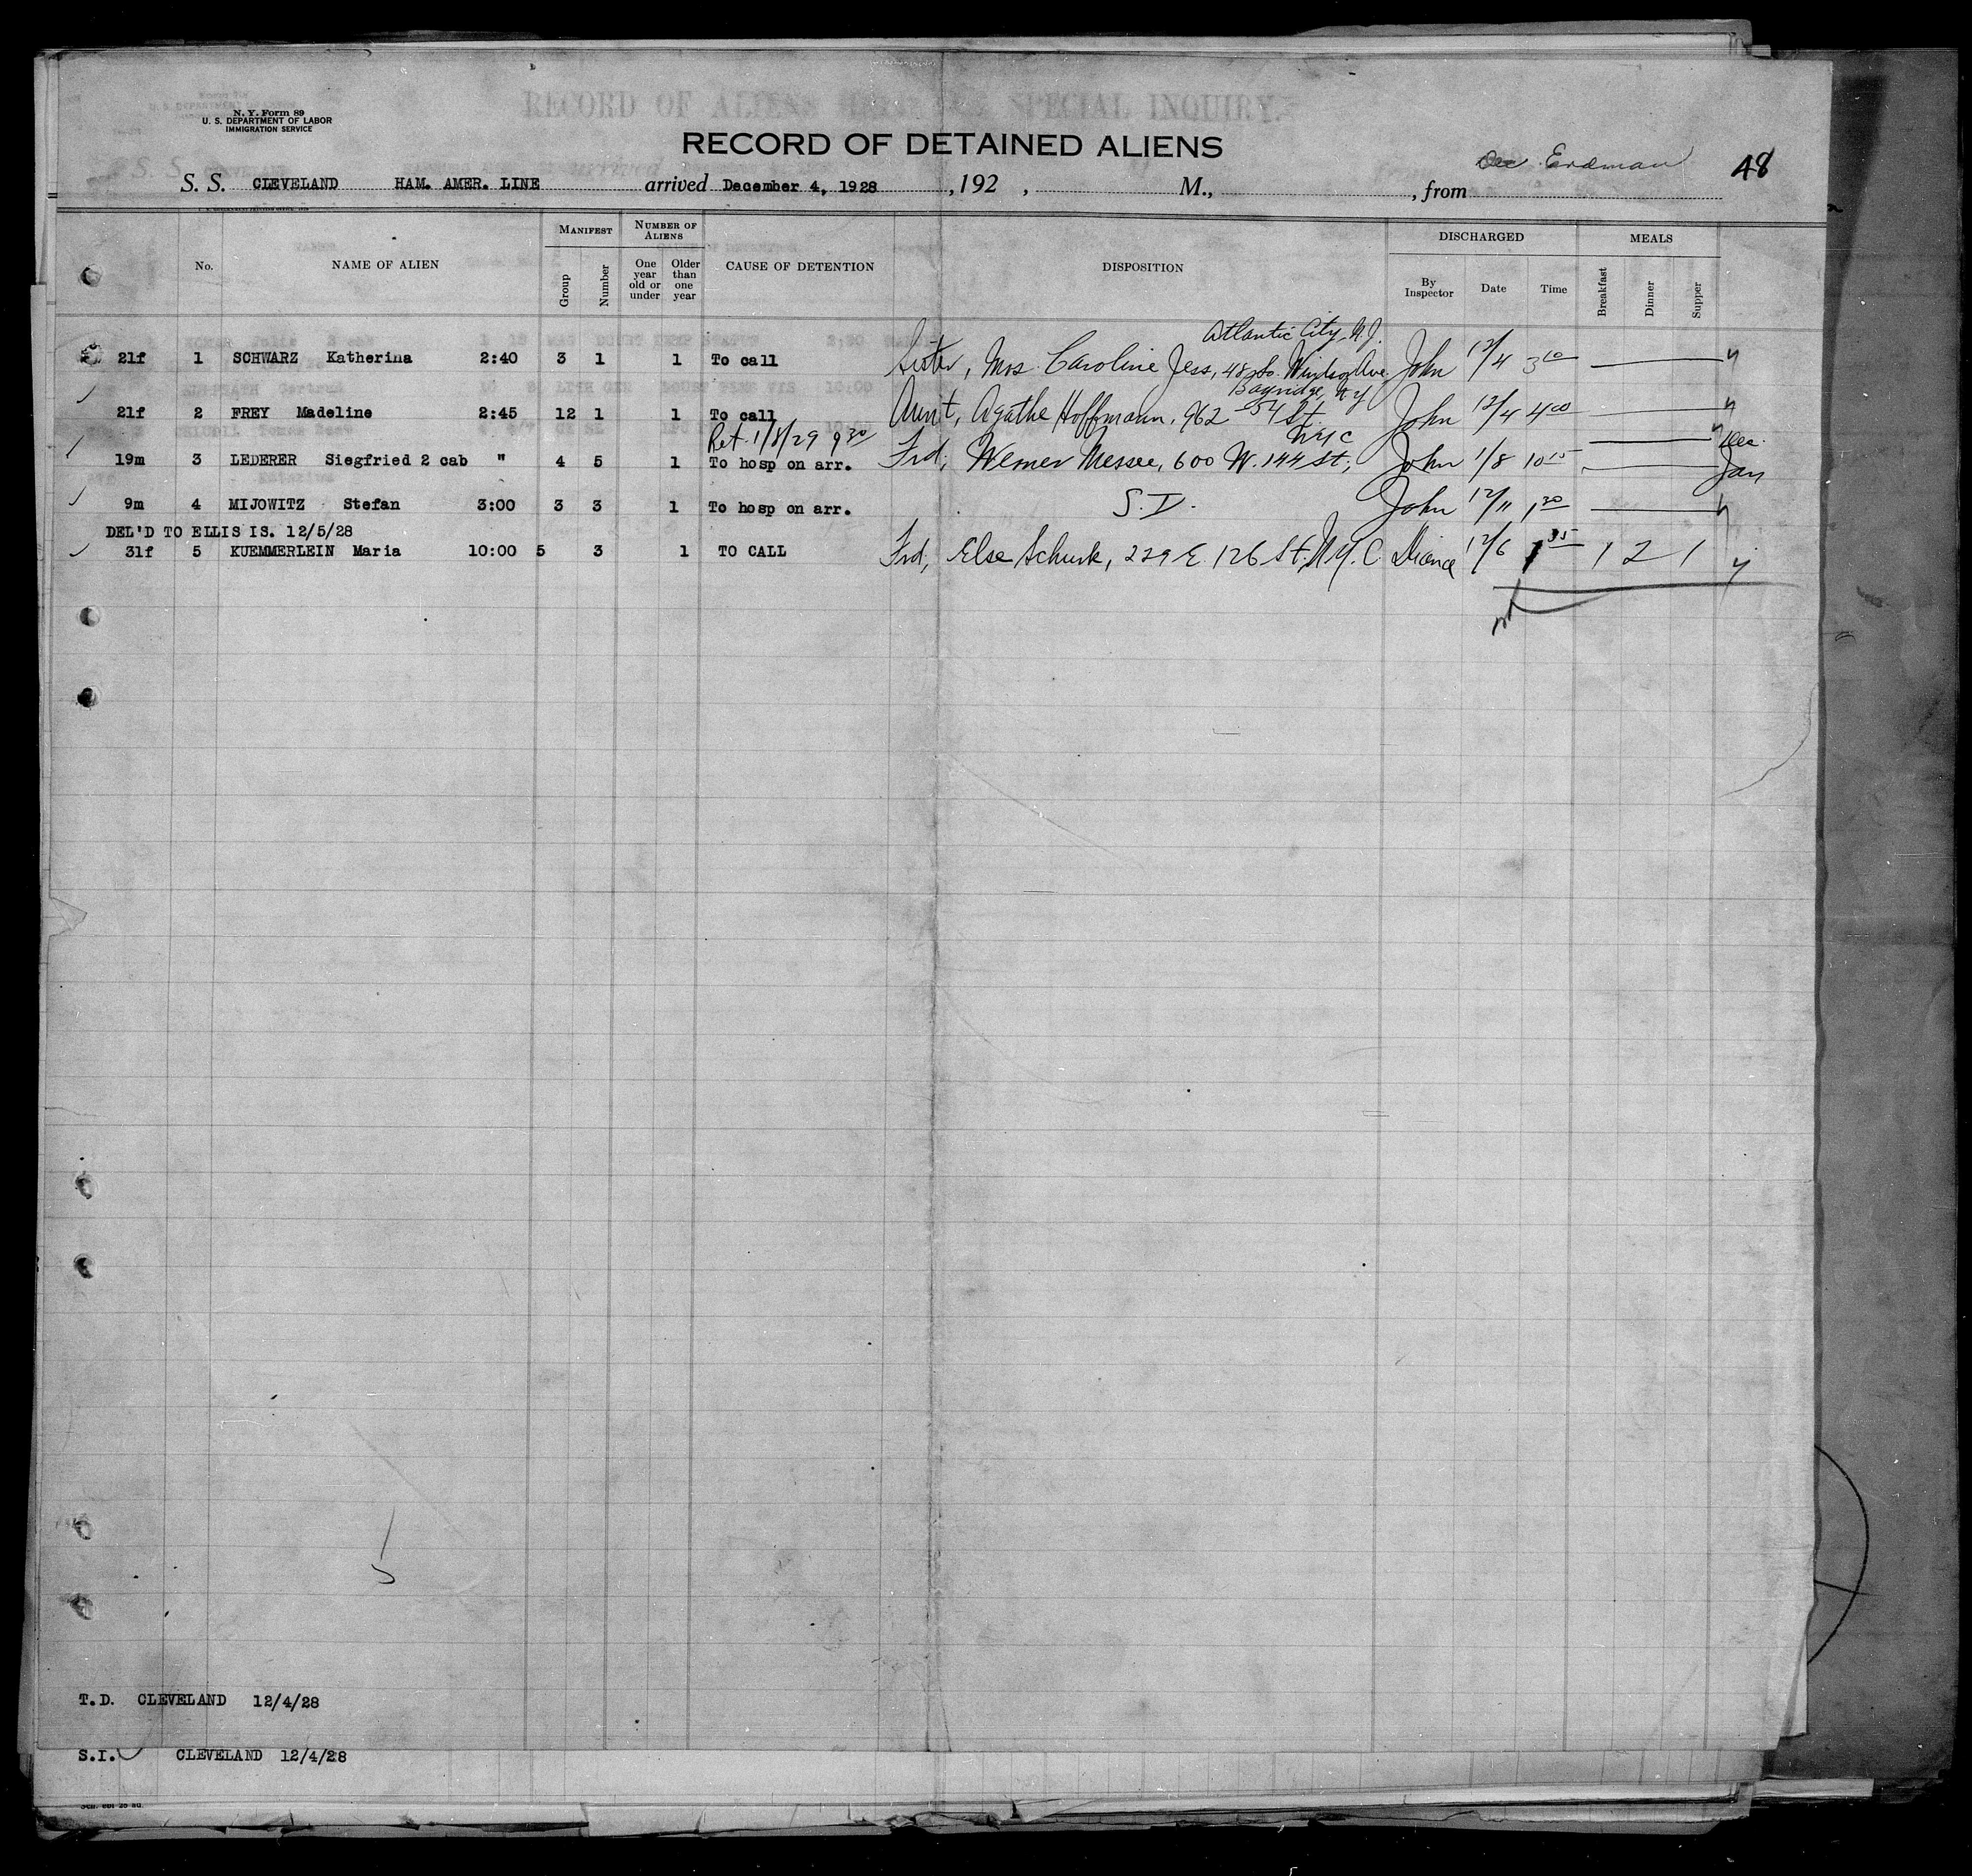 N. Y. Form 89
U. S. DEPARTMENT OF LABOR
IMMIGRATION SERVICE
RECORD OF ALIENS SPECIAL INQUIRY.
RECORD OF DETAINED ALIENS
Erdman 48
S. S. CLEVELAND HAM. AMER. LINE arrived December 4, 1928, 192 , M., , from
No. NAME OF ALIEN MANIFEST Group Number NUMBER OF ALIENS One year old or under Older than one year CAUSE OF DETENTION DISPOSITION DISCHARGED By Inspector Date Time MEALS Breakfast Dinner Supper
Atlantic City, N.J.
21f 1 SCHWARZ Katherina 2:40 3 1 1 To call Sister, Mrs. Caroline Jess, 48 So. Windsor Ave. John 12/4 3 10
Bayridge, N Y
21f 2 FREY Madeline 2:45 12 1 1 To call Aunt, Agathe Hoffmann, 962 - 54 St. John 12/4 4 00
Ret. 1/8/29 9 30 NYC Dec.
19m 3 LEDERER Siegfried 2 cab " 4 5 1 To hosp on arr. Frd, Werner Messee, 600 W. 144 St., John 1/8 10 15 Jan
9m 4 MIJOWITZ Stefan 3:00 3 3 1 To hosp on arr. S.I. John 12/11 1 20
DEL'D TO ELLIS IS. 12/5/28
31f 5 KUEMMERLEIN Maria 10:00 5 3 1 TO CALL Frd, Else Schurk, 229 E. 126 St, N.Y.C. 12/6 1 35 1 2 1
T.D. CLEVELAND 12/4/28
S.I. CLEVELAND 12/4/28